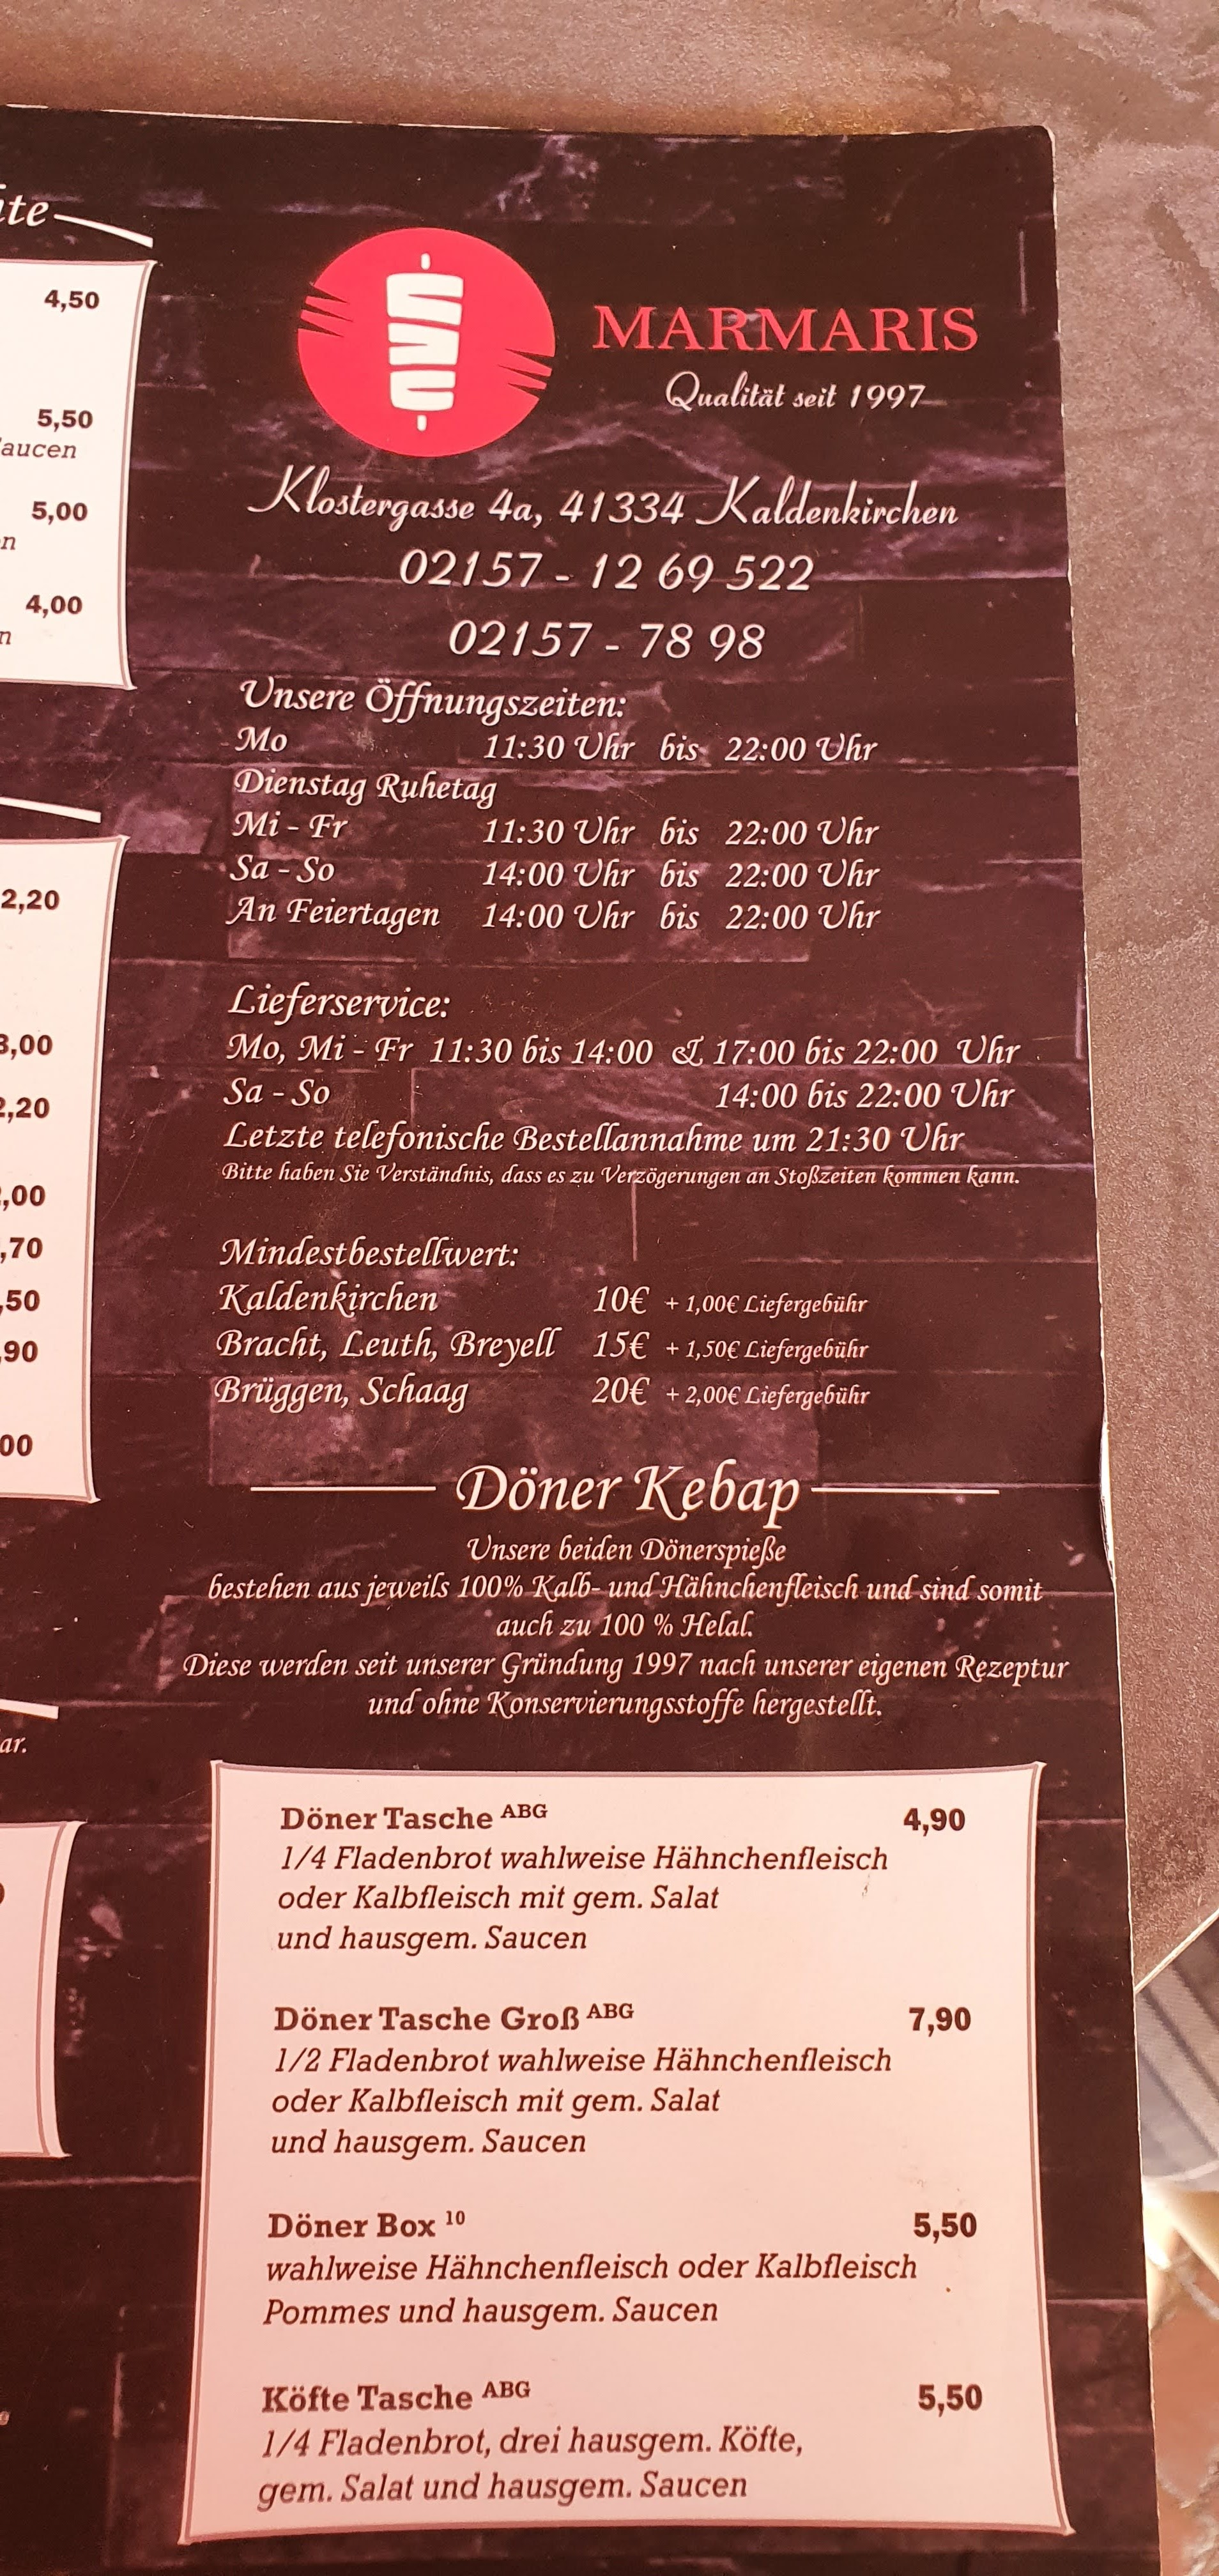 ite
4,50
5,50
aucen
5,00
n
4,00
n
2,20
3,00
2,20
,00
,70
,50
,90
00
ar.
MARMARIS
Qualität seit 1997
Klostergasse 4a, 41334 Kaldenkirchen
02157 - 12 69 522
02157 - 78 98
Unsere Öffnungszeiten:
Mo 11:30 Uhr bis 22:00 Uhr
Dienstag Ruhetag
Mi - Fr 11:30 Uhr bis 22:00 Uhr
Sa - So 14:00 Uhr bis 22:00 Uhr
An Feiertagen 14:00 Uhr bis 22:00 Uhr
Lieferservice:
Mo, Mi - Fr 11:30 bis 14:00 & 17:00 bis 22:00 Uhr
Sa - So 14:00 bis 22:00 Uhr
Letzte telefonische Bestellannahme um 21:30 Uhr
Bitte haben Sie Verständnis, dass es zu Verzögerungen an Stoßzeiten kommen kann.
Mindestbestellwert:
Kaldenkirchen 10€ + 1,00€ Liefergebühr
Bracht, Leuth, Breyell 15€ + 1,50€ Liefergebühr
Brüggen, Schaag 20€ + 2,00€ Liefergebühr
Döner Kebap
Unsere beiden Dönerspieße
bestehen aus jeweils 100% Kalb- und Hähnchenfleisch und sind somit
auch zu 100 % Helal.
Diese werden seit unserer Gründung 1997 nach unserer eigenen Rezeptur
und ohne Konservierungsstoffe hergestellt.
Döner Tasche ABG 4,90
1/4 Fladenbrot wahlweise Hähnchenfleisch
oder Kalbfleisch mit gem. Salat
und hausgem. Saucen
Döner Tasche Groß ABG 7,90
1/2 Fladenbrot wahlweise Hähnchenfleisch
oder Kalbfleisch mit gem. Salat
und hausgem. Saucen
Döner Box 10 5,50
wahlweise Hähnchenfleisch oder Kalbfleisch
Pommes und hausgem. Saucen
Köfte Tasche ABG 5,50
1/4 Fladenbrot, drei hausgem. Köfte,
gem. Salat und hausgem. Saucen